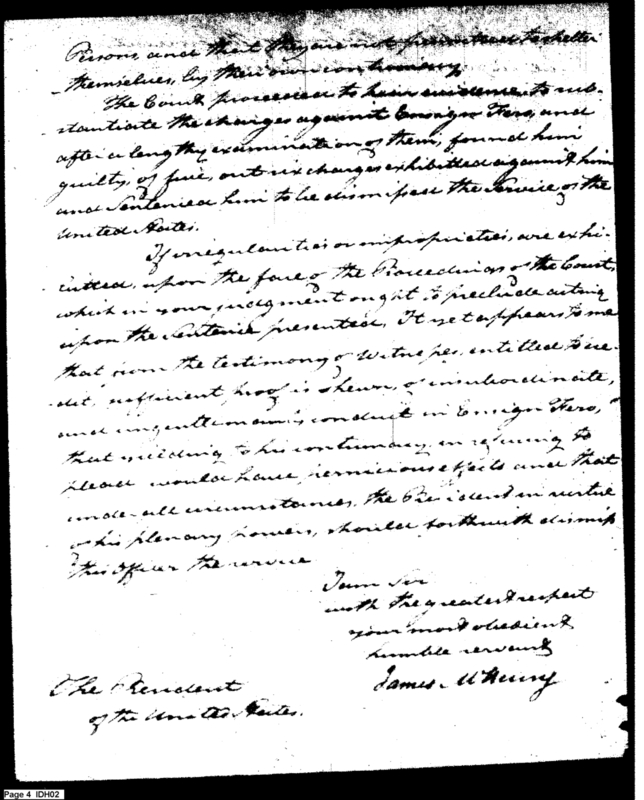 Persons, and that they are not permitted to shelter
themselves, by their own contumacy.
The Court proceeded to hear evidence to sub-
stantiate the charges against Ensign Fero, and
after a lengthy examination of them, found him
guilty, of five, out six charges exhibitted against him
and Sentenced him to be dismissed the Service of the
United States.
If irregularities or improprieties, are exhi-
bitted, upon the face of the Proceedings of the Court,
which in your judgment ought to preclude acting
upon the Sentence presented, It yet appears to me
that from the testimony of Witnesses, entitled to cre-
dit, sufficient proof is shewn, of insubordinate,
and ungentlemanly conduct in Ensign Fero,
that yielding to his contumacy, in refusing to
plead would have pernicious effects and that
under all circumstances, the President in virtue
of his plenary powers, should forthwith dismiss
this Officer the service
I am Sir
with the greatest respect
your most obedient
humble servant
James McHenry
The President
of the United States.
Page 4 IDH02